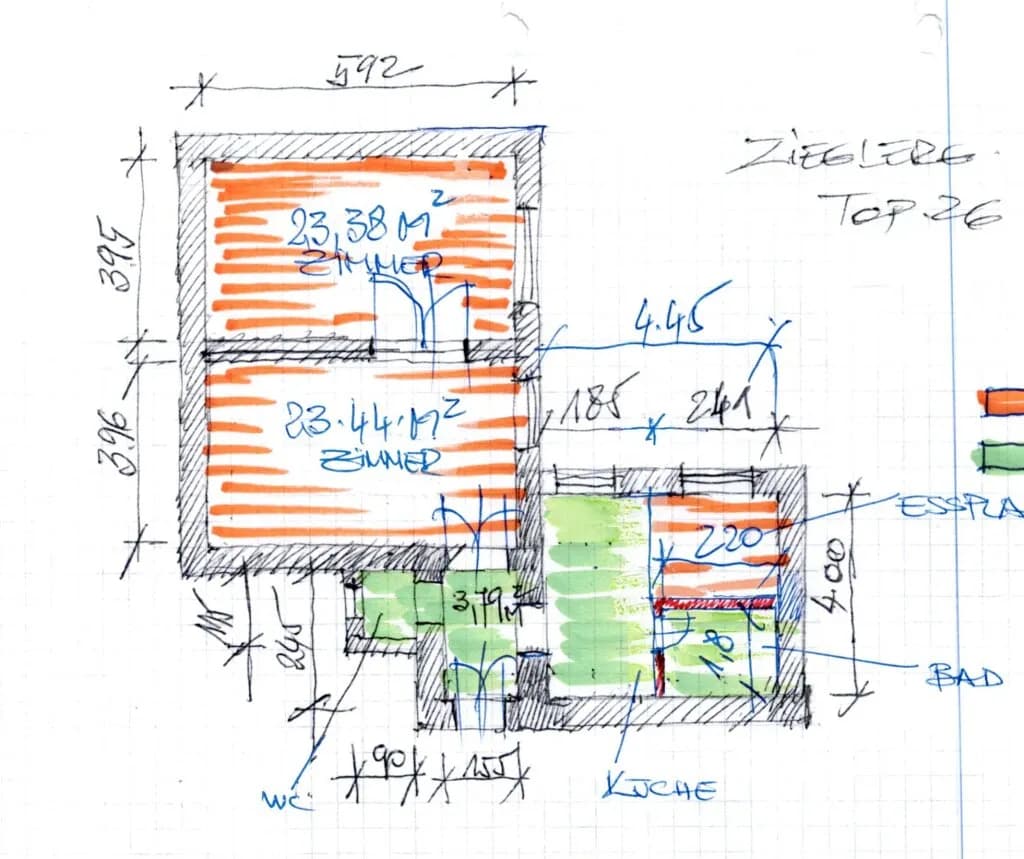 592
ZIEGLERG.
TOP.26
395
23,38 M²
ZIMMER
4.45
185
241
396
23.44 M²
ZIMMER
220
ESSPLA
4.00
3,79 M²
115
245
1,8
BAD
90
155
WC
KÜCHE